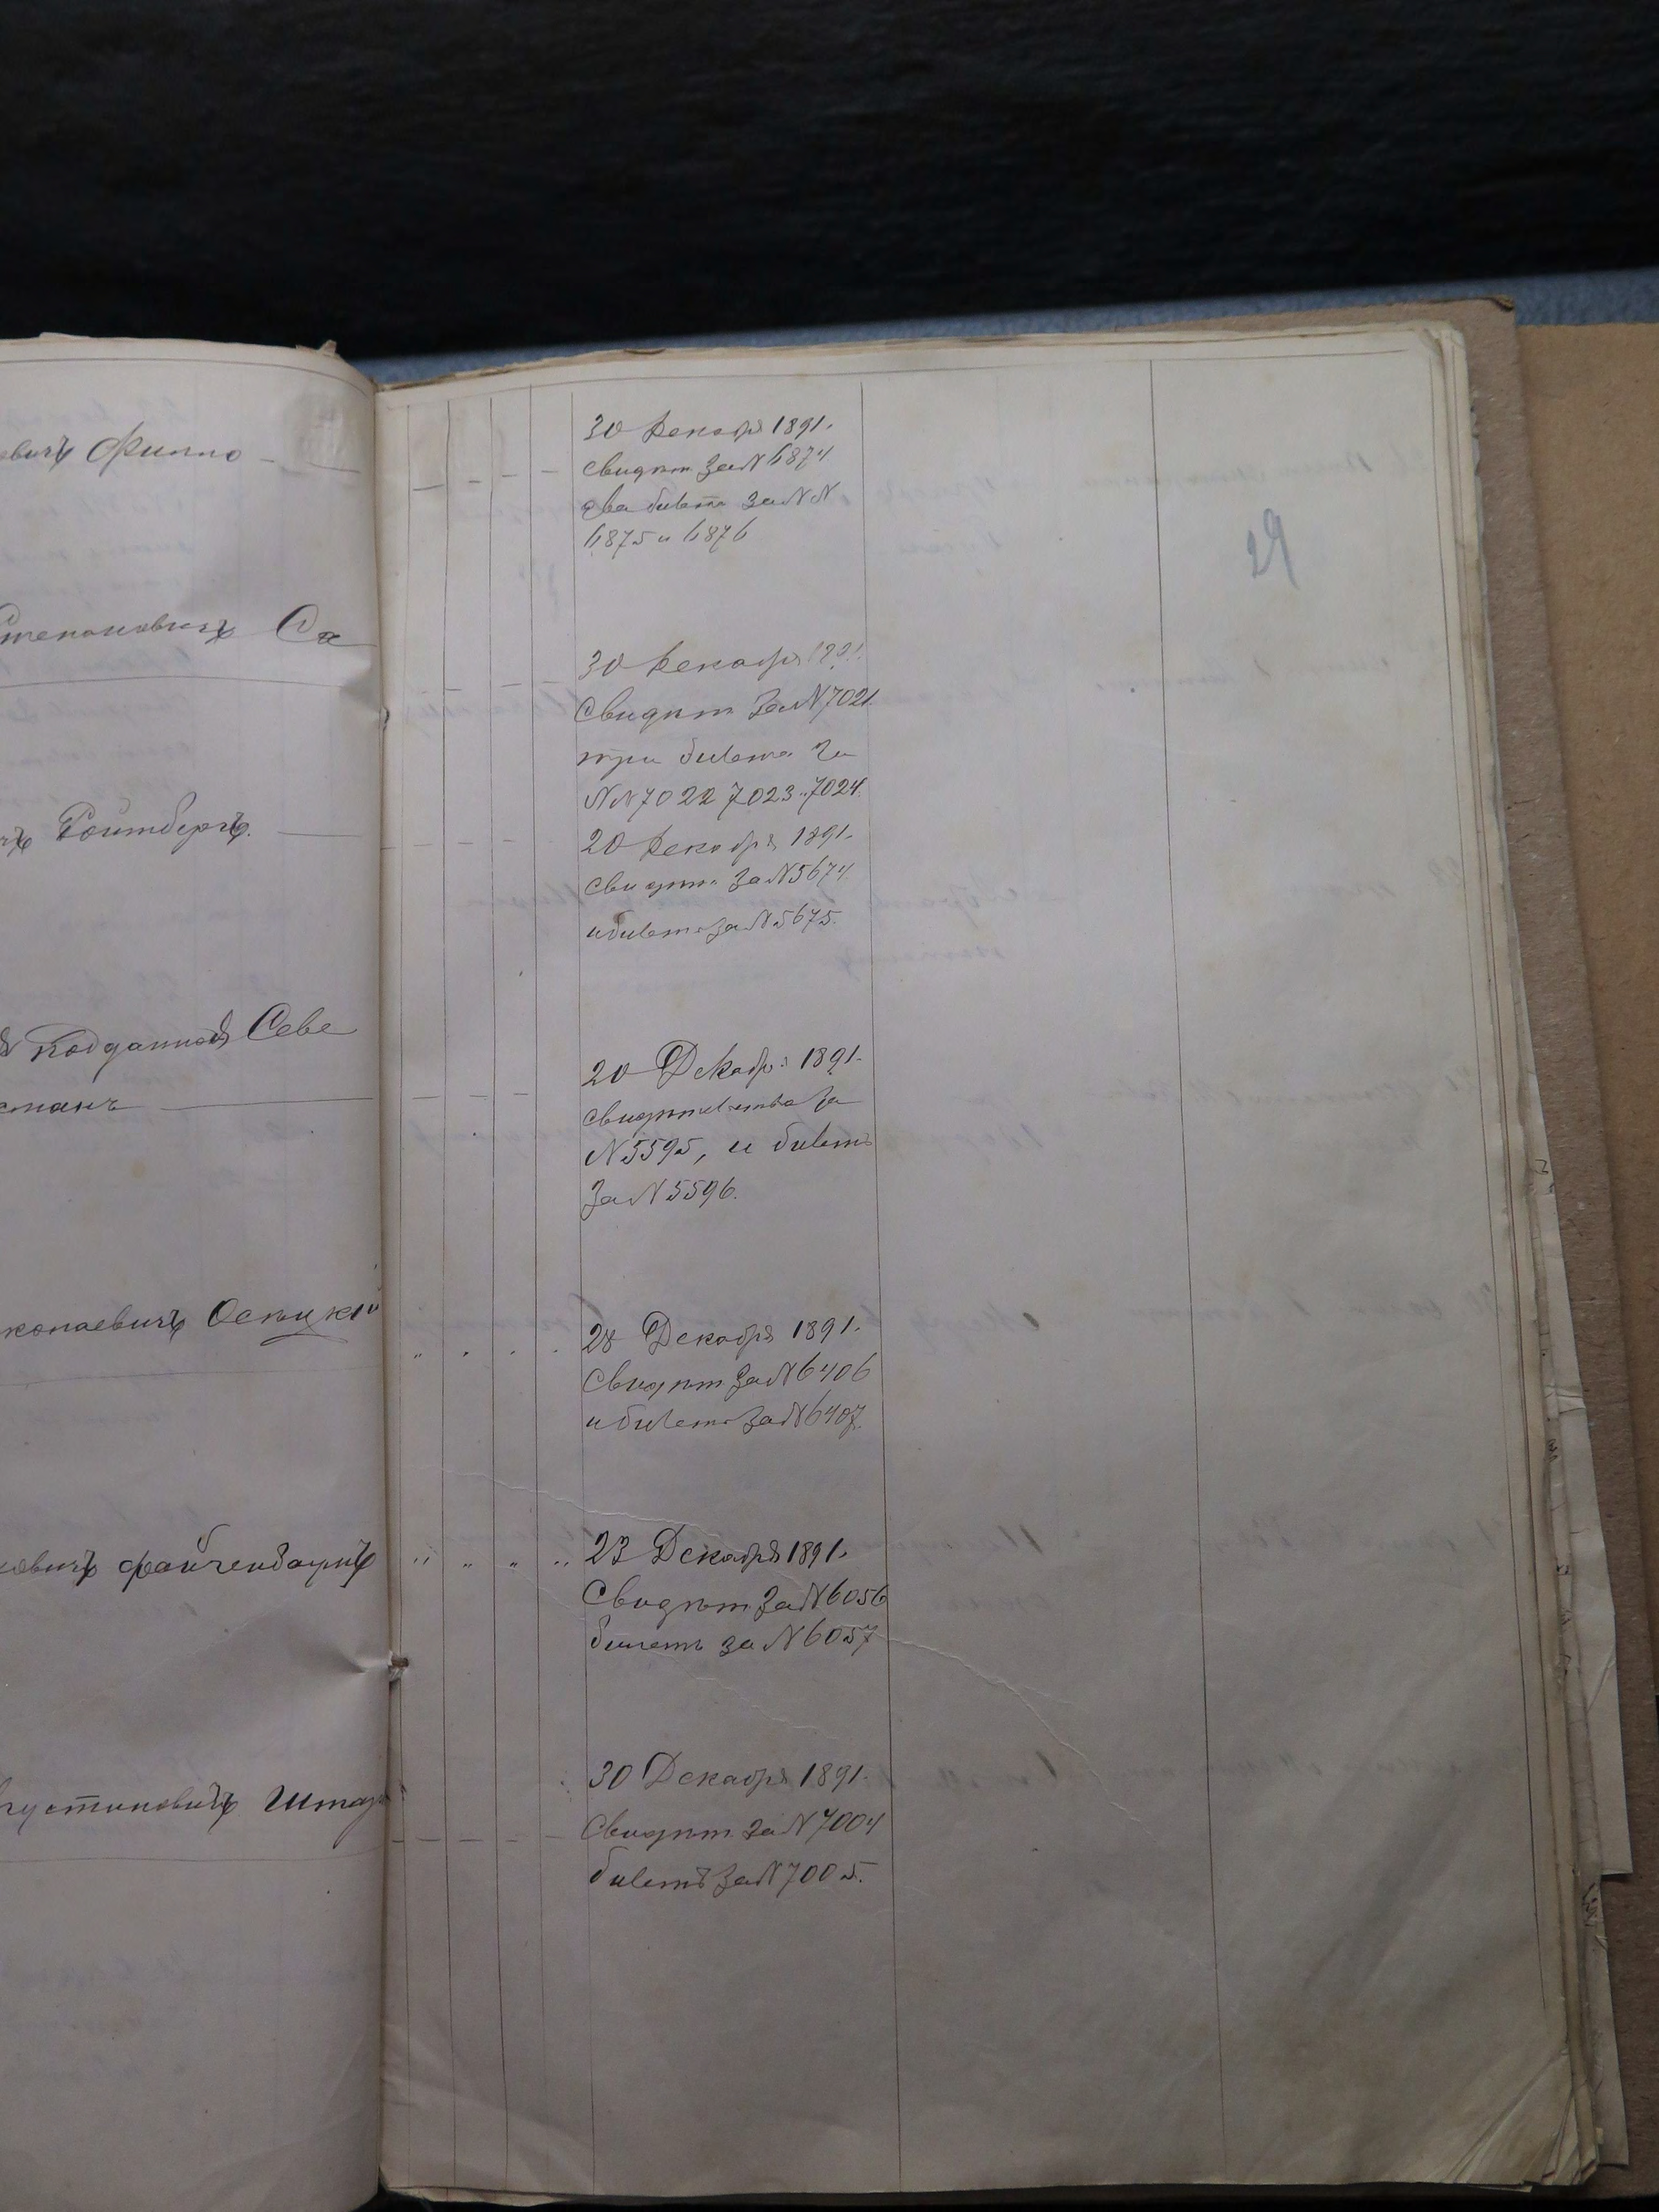 евичъ Филипо
Степановичъ Са
чъ Ройтбергъ.
подданной Севе
сманъ
колаевичъ Осецкій
ковичъ Файнгенбаумъ
густиновичъ Штар
30 Декабря 1891.
Свидѣт за N 6874
два билета за NN
6875 и 6876
29
30 Декабря 1891.
Свидѣт за N 7021
три билета за
NN 7022 7023 и 7024.
20 Декабря 1891.
Свидѣт. за N 5674
и билетъ за N 5675.
20 Декабря 1891.
Свидѣтельства за
N 5595, и билетъ
за N 5596.
28 Декабря 1891.
Свидѣт за N 6406
и билетъ за N 6407.
23 Декабря 1891.
Свидѣт. за N 6056
билетъ за N 6057
30 Декабря 1891.
Свидѣт за N 7004
билетъ за N 7005.